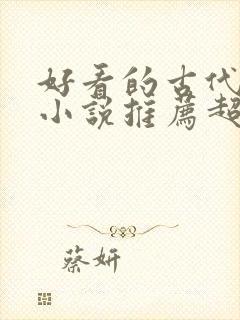 好看的古代
小说推荐超
蔡妍